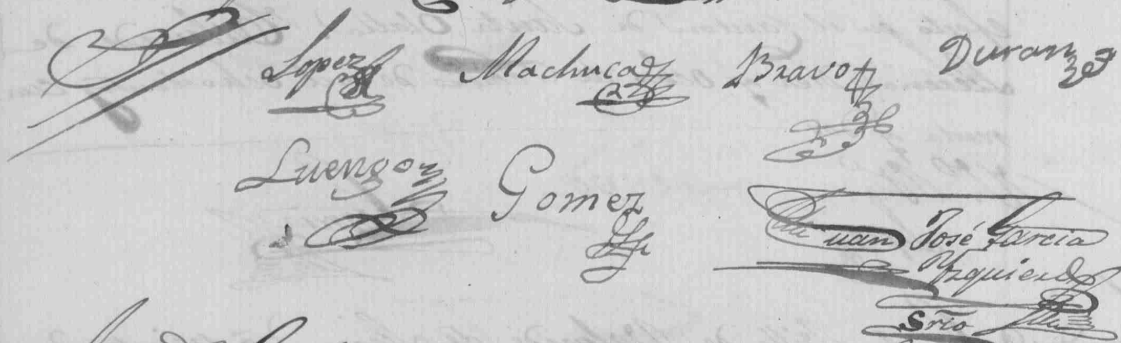 Lopez Machuca Bravo Duran
Luengo Gomez
Juan José Garcia
Yzquierdo
Srio